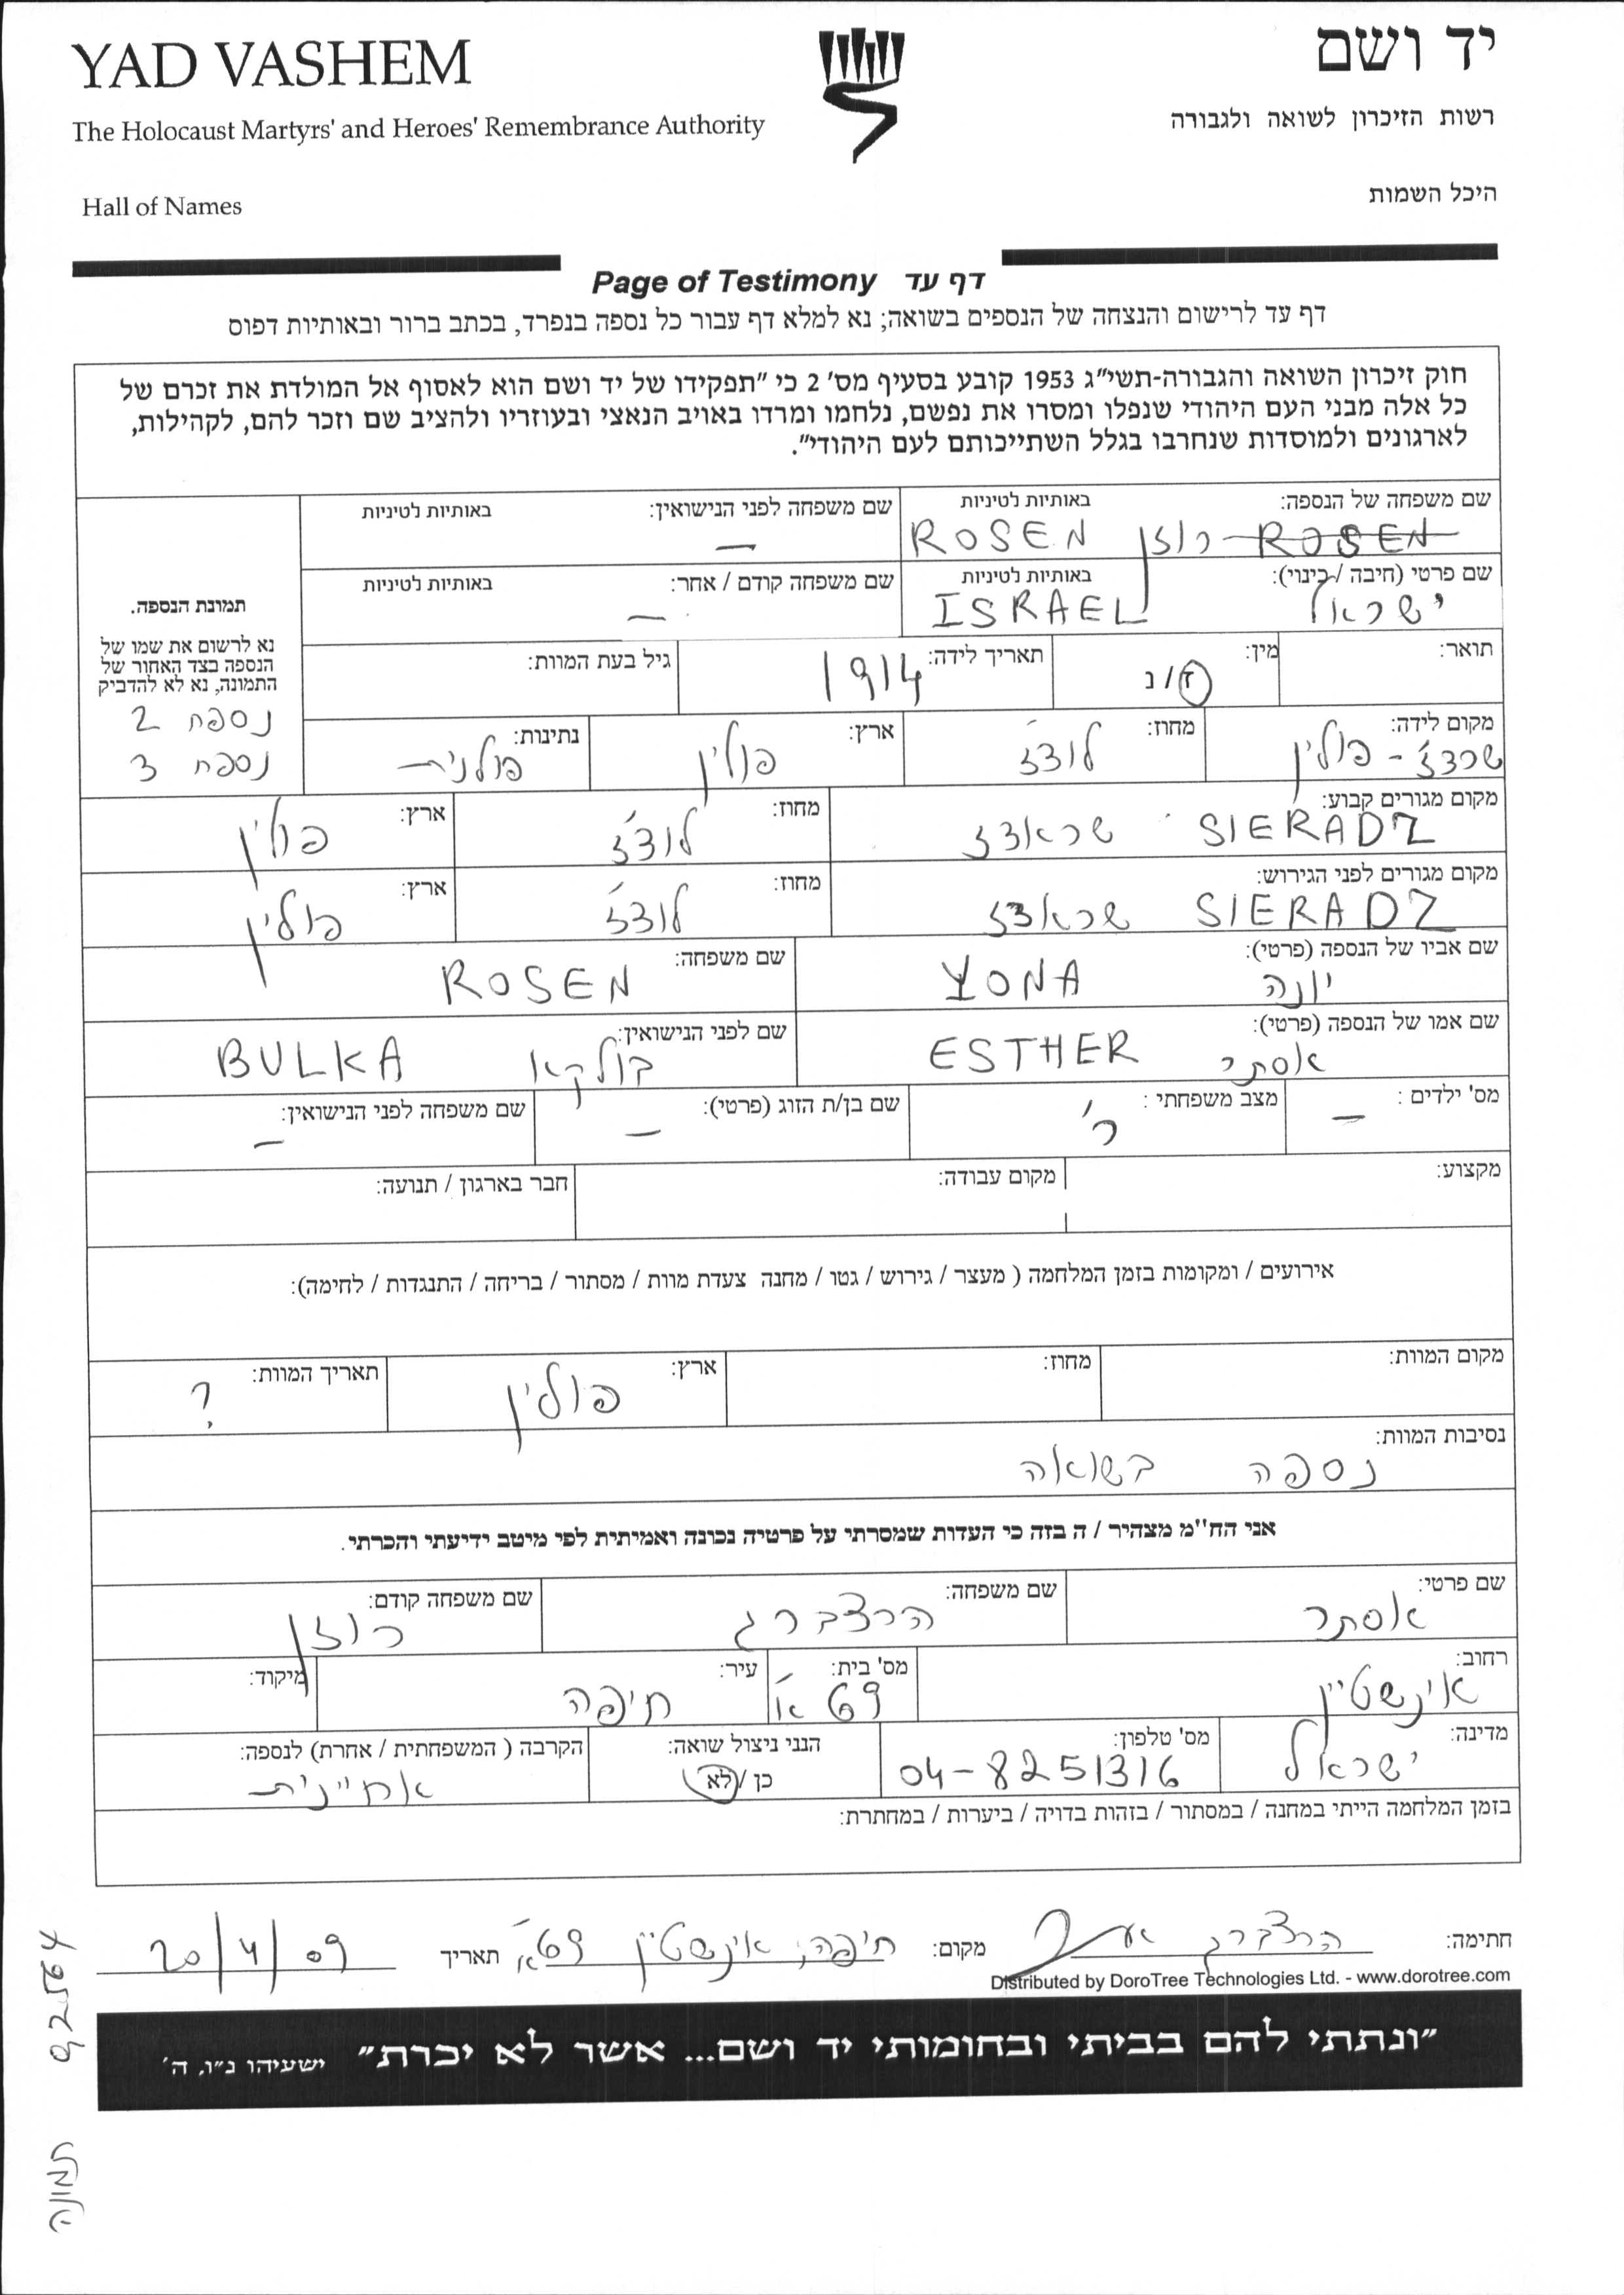 YAD VASHEM
יד ושם
The Holocaust Martyrs' and Heroes' Remembrance Authority
רשות הזיכרון לשואה ולגבורה
Hall of Names
היכל השמות
Page of Testimony דף עד
דף עד לרישום והנצחה של הנספים בשואה; נא למלא דף עבור כל נספה בנפרד, בכתב ברור ובאותיות דפוס
חוק זיכרון השואה והגבורה-תשי״ג 1953 קובע בסעיף מס' 2 כי ״תפקידו של יד ושם הוא לאסוף אל המולדת את זכרם של
כל אלה מבני העם היהודי שנפלו ומסרו את נפשם, נלחמו ומרדו באויב הנאצי ובעוזריו ולהציב שם וזכר להם, לקהילות,
לארגונים ולמוסדות שנחרבו בגלל השתייכותם לעם היהודי״.
שם משפחה של הנספה: באותיות לטיניות שם משפחה לפני הנישואין: באותיות לטיניות
ROSEN רוזן ROSEN –
שם פרטי (חיבה / כינוי): באותיות לטיניות שם משפחה קודם / אחר: באותיות לטיניות
ישראל ISRAEL –
תמונת הנספה.
נא לרשום את שמו של
הנספה בצד האחור של
התמונה, נא לא להדביק
נספח 2
נספח 3
תואר: מין: ז / נ תאריך לידה: 1914 גיל בעת המוות:
מקום לידה: מחוז: ארץ: נתינות:
שרדז' - פולין לודז' פולין פולנית
מקום מגורים קבוע: מחוז: ארץ:
SIERADZ שראדז לודז' פולין
מקום מגורים לפני הגירוש: מחוז: ארץ:
SIERADZ שראדז לודז' פולין
שם אביו של הנספה (פרטי): שם משפחה:
יונה YONA ROSEN
שם אמו של הנספה (פרטי): שם לפני הנישואין:
אסתר ESTHER בולקא BULKA
מס' ילדים : מצב משפחתי : שם בן/ת הזוג (פרטי): שם משפחה לפני הנישואין:
– ר' – –
מקצוע: מקום עבודה: חבר בארגון / תנועה:
אירועים / ומקומות בזמן המלחמה ( מעצר / גירוש / גטו / מחנה צעדת מוות / מסתור / בריחה / התנגדות / לחימה):
מקום המוות: מחוז: ארץ: תאריך המוות:
פולין ?
נסיבות המוות:
נספה בשואה
אני הח"מ מצהיר / ה בזה כי העדות שמסרתי על פרטיה נכונה ואמיתית לפי מיטב ידיעתי והכרתי.
שם פרטי: שם משפחה: שם משפחה קודם:
אסתר הרצברג רוזן
רחוב: מס' בית: עיר: מיקוד:
אינשטיין 69 א' חיפה
מדינה: מס' טלפון: הנני ניצול שואה: הקרבה ( המשפחתית / אחרת) לנספה:
ישראל 04-8251316 כן / לא אחיינית
בזמן המלחמה הייתי במחנה / במסתור / בזהות בדויה / ביערות / במחתרת:
חתימה: הרצברג מקום: חיפה, אינשטיין 69א' תאריך 20/4/09
Distributed by DoroTree Technologies Ltd. - www.dorotree.com
״ונתתי להם בביתי ובחומותי יד ושם... אשר לא יכרת״ ישעיהו נ״ו, ה'
92564
תמונה